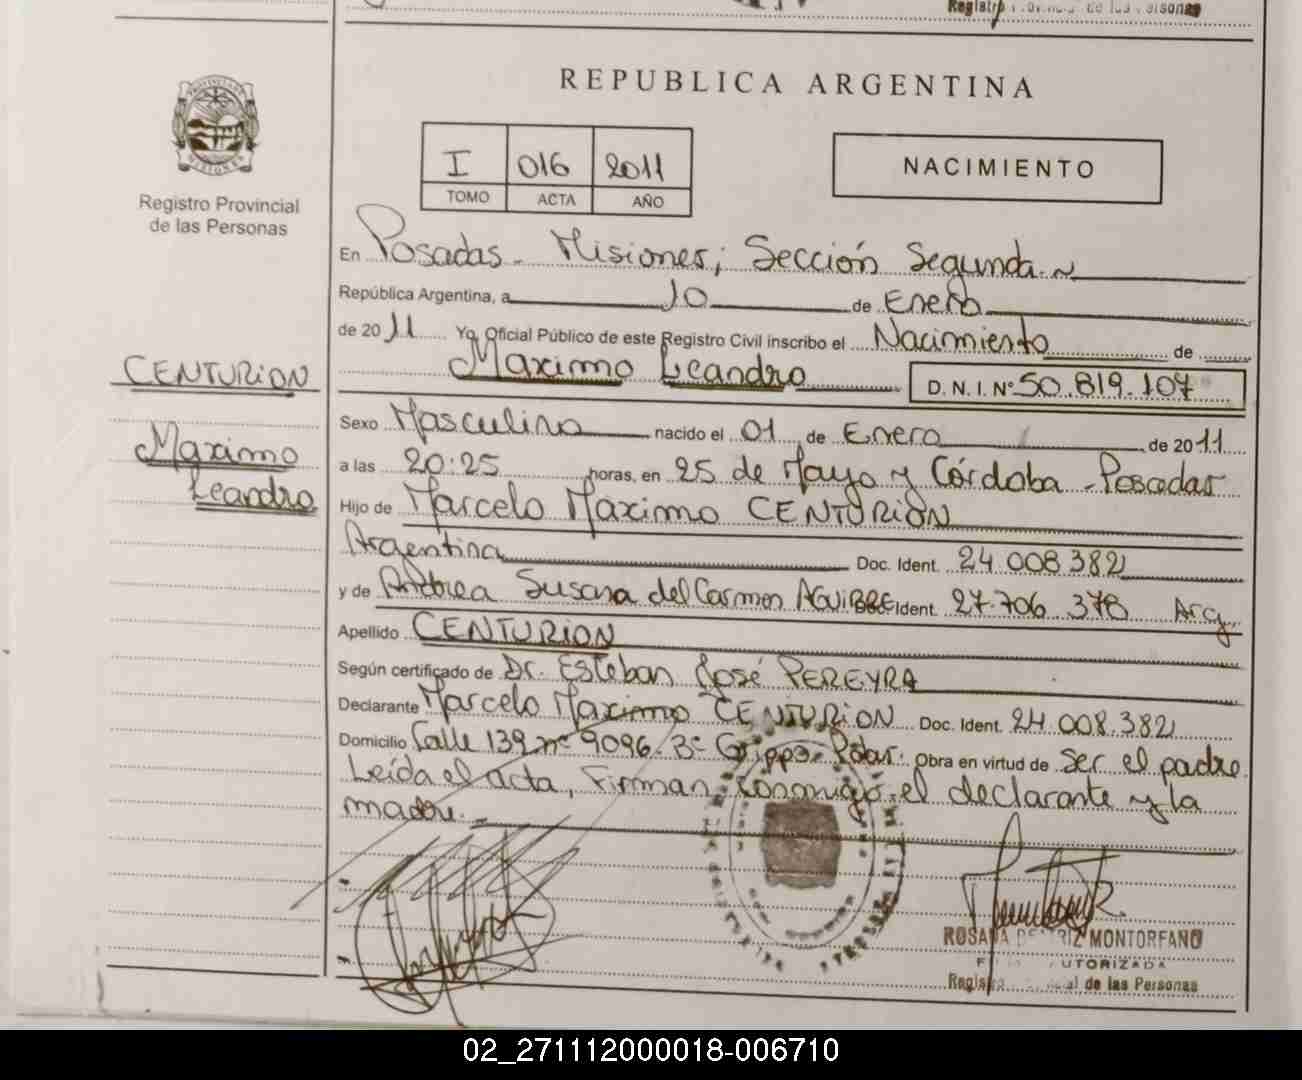 REPUBLICA ARGENTINA
I 016 2011
TOMO ACTA AÑO
NACIMIENTO
Registro Provincial
de las Personas
CENTURION
Maximo
Leandro
En Posadas - Misiones; Sección Segunda
República Argentina, a 10 de Enero
de 2011 Yo, Oficial Público de este Registro Civil inscribo el Nacimiento de
Maximo Leandro D. N. I. Nº 50.819.107
Sexo Masculino nacido el 01 de Enero de 2011
a las 20:25 horas, en 25 de Mayo y Córdoba - Posadas
Hijo de Marcelo Maximo CENTURION
Argentina Doc. Ident. 24.008.382
y de Andrea Susana del Carmen AGUIRRE Ident. 27.706.378 Arg.
Apellido CENTURION
Según certificado de Dr. Esteban José PEREYRA
Declarante Marcelo Maximo CENTURION Doc. Ident. 24.008.382
Domicilio Calle 139 nº 9096. Bº Obra en virtud de ser el padre.
Leída el acta, Firman, conmigo, el declarante y la
madre.
MONTORFANO
AUTORIZADA
de las Personas
02_271112000018-006710